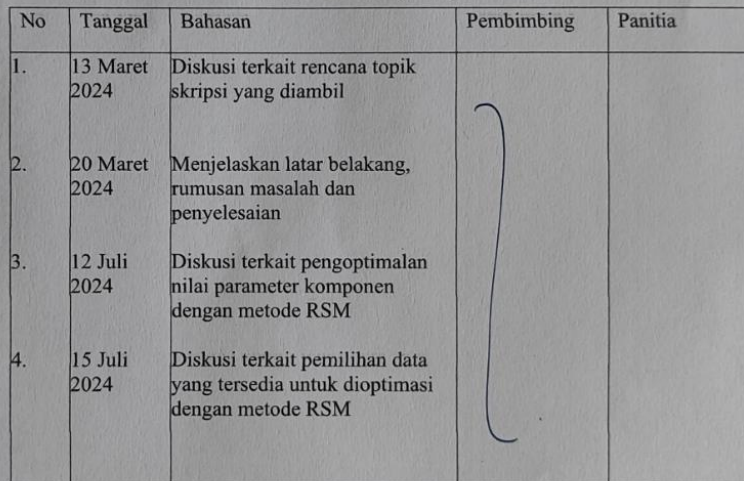 No Tanggal Bahasan Pembimbing Panitia
1. 13 Maret Diskusi terkait rencana topik
2024 skripsi yang diambil
2. 20 Maret Menjelaskan latar belakang,
2024 rumusan masalah dan
penyelesaian
3. 12 Juli Diskusi terkait pengoptimalan
2024 nilai parameter komponen
dengan metode RSM
4. 15 Juli Diskusi terkait pemilihan data
2024 yang tersedia untuk dioptimasi
dengan metode RSM